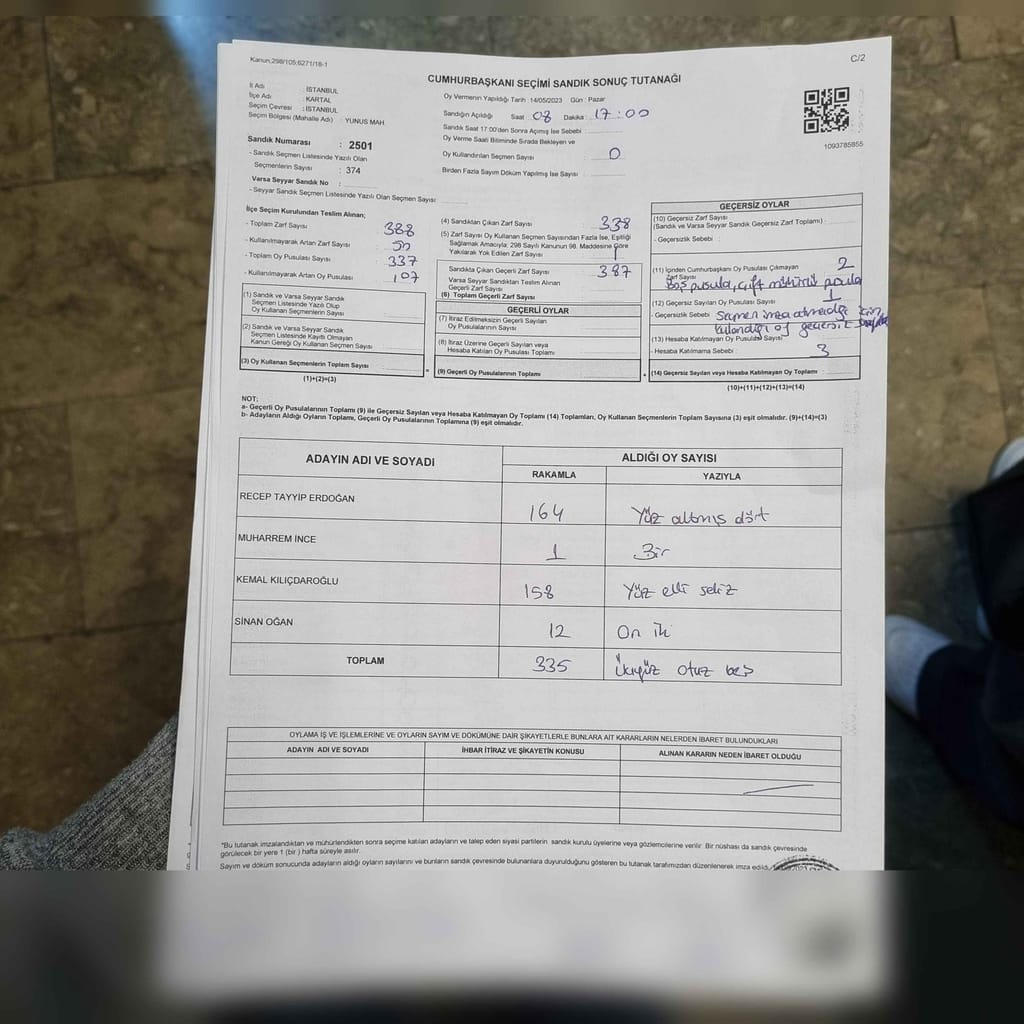 Kanun,298/105;6271/18-1
C/2
CUMHURBAŞKANI SEÇİMİ SANDIK SONUÇ TUTANAĞI
İl Adı : İSTANBUL
İlçe Adı : KARTAL
Seçim Çevresi : İSTANBUL
Seçim Bölgesi (Mahalle Adı) : YUNUS MAH.
Sandık Numarası : 2501
- Sandık Seçmen Listesinde Yazılı Olan
Seçmenlerin Sayısı : 374
Varsa Seyyar Sandık No :
- Seyyar Sandık Seçmen Listesinde Yazılı Olan Seçmen Sayısı
Oy Vermenin Yapıldığı Tarih :14/05/2023 Gün : Pazar
Sandığın Açıldığı Saat 08 Dakika 17:00
Sandık Saat 17:00'den Sonra Açılmış İse Sebebi :
Oy Verme Saati Bitiminde Sırada Bekleyen ve
Oy Kullandırılan Seçmen Sayısı : 0
Birden Fazla Sayım Döküm Yapılmış İse Sayısı :
1093785855
İlçe Seçim Kurulundan Teslim Alınan;
- Toplam Zarf Sayısı 388
- Kullanılmayarak Artan Zarf Sayısı
- Toplam Oy Pusulası Sayısı 337
- Kullanılmayarak Artan Oy Pusulası 107
(1) Sandık ve Varsa Seyyar Sandık
Seçmen Listesinde Yazılı Olup
Oy Kullanan Seçmenlerin Sayısı
(2) Sandık ve Varsa Seyyar Sandık
Seçmen Listesinde Kayıtlı Olmayan
Kanun Gereği Oy Kullanan Seçmen Sayısı
(3) Oy Kullanan Seçmenlerin Toplam Sayısı
(1)+(2)=(3)
(4) Sandıktan Çıkan Zarf Sayısı 338
(5) Zarf Sayısı Oy Kullanan Seçmen Sayısından Fazla İse, Eşitliği
Sağlamak Amacıyla; 298 Sayılı Kanunun 98. Maddesine Göre
Yakılarak Yok Edilen Zarf Sayısı
Sandıkta Çıkan Geçerli Zarf Sayısı 387
Varsa Seyyar Sandıktan Teslim Alınan
Geçerli Zarf Sayısı
(6) Toplam Geçerli Zarf Sayısı
GEÇERLİ OYLAR
(7) İtiraz Edilmeksizin Geçerli Sayılan
Oy Pusulalarının Sayısı
(8) İtiraz Üzerine Geçerli Sayılan veya
Hesaba Katılan Oy Pusulası Toplamı
(9) Geçerli Oy Pusulalarının Toplamı
GEÇERSİZ OYLAR
(10) Geçersiz Zarf Sayısı
(Sandık ve Varsa Seyyar Sandık Geçersiz Zarf Toplamı)
- Geçersizlik Sebebi :
(11) İçinden Cumhurbaşkanı Oy Pusulası Çıkmayan
Zarf Sayısı 2
Boş pusula, çift mühürlü pusula
(12) Geçersiz Sayılan Oy Pusulası Sayısı 1
- Geçersizlik Sebebi : Seçmen imza atmadığı için
kulandığı oy geçersiz sayıldı
(13) Hesaba Katılmayan Oy Pusulası Sayısı
- Hesaba Katılmama Sebebi : 3
(14) Geçersiz Sayılan veya Hesaba Katılmayan Oy Toplamı
(10)+(11)+(12)+(13)=(14)
NOT:
a- Geçerli Oy Pusulalarının Toplamı (9) ile Geçersiz Sayılan veya Hesaba Katılmayan Oy Toplamı (14) Toplamları, Oy Kullanan Seçmenlerin Toplam Sayısına (3) eşit olmalıdır. (9)+(14)=(3)
b- Adayların Aldığı Oyların Toplamı, Geçerli Oy Pusulalarının Toplamına (9) eşit olmalıdır.
ADAYIN ADI VE SOYADI ALDIĞI OY SAYISI
RAKAMLA YAZIYLA
RECEP TAYYİP ERDOĞAN 164 Yüz altmış dört
MUHARREM İNCE 1 Bir
KEMAL KILIÇDAROĞLU 158 Yüz elli sekiz
SİNAN OĞAN 12 On iki
TOPLAM 335 Üçyüz otuz beş
OYLAMA İŞ VE İŞLEMLERİNE VE OYLARIN SAYIM VE DÖKÜMÜNE DAİR ŞİKAYETLERLE BUNLARA AİT KARARLARIN NELERDEN İBARET BULUNDUKLARI
ADAYIN ADI VE SOYADI İHBAR İTİRAZ VE ŞİKAYETİN KONUSU ALINAN KARARIN NEDEN İBARET OLDUĞU
*Bu tutanak imzalandıktan ve mühürlendikten sonra seçime katılan adayların ve talep eden siyasi partilerin sandık kurulu üyelerine veya gözlemcilerine verilir. Bir nüshası da sandık çevresinde
görülecek bir yere 1 (bir ) hafta süreyle asılır.
Sayım ve döküm sonucunda adayların aldığı oyların sayılarını ve bunların sandık çevresinde bulunanlara duyurulduğunu gösteren bu tutanak tarafımızdan düzenlenerek imza edildi.